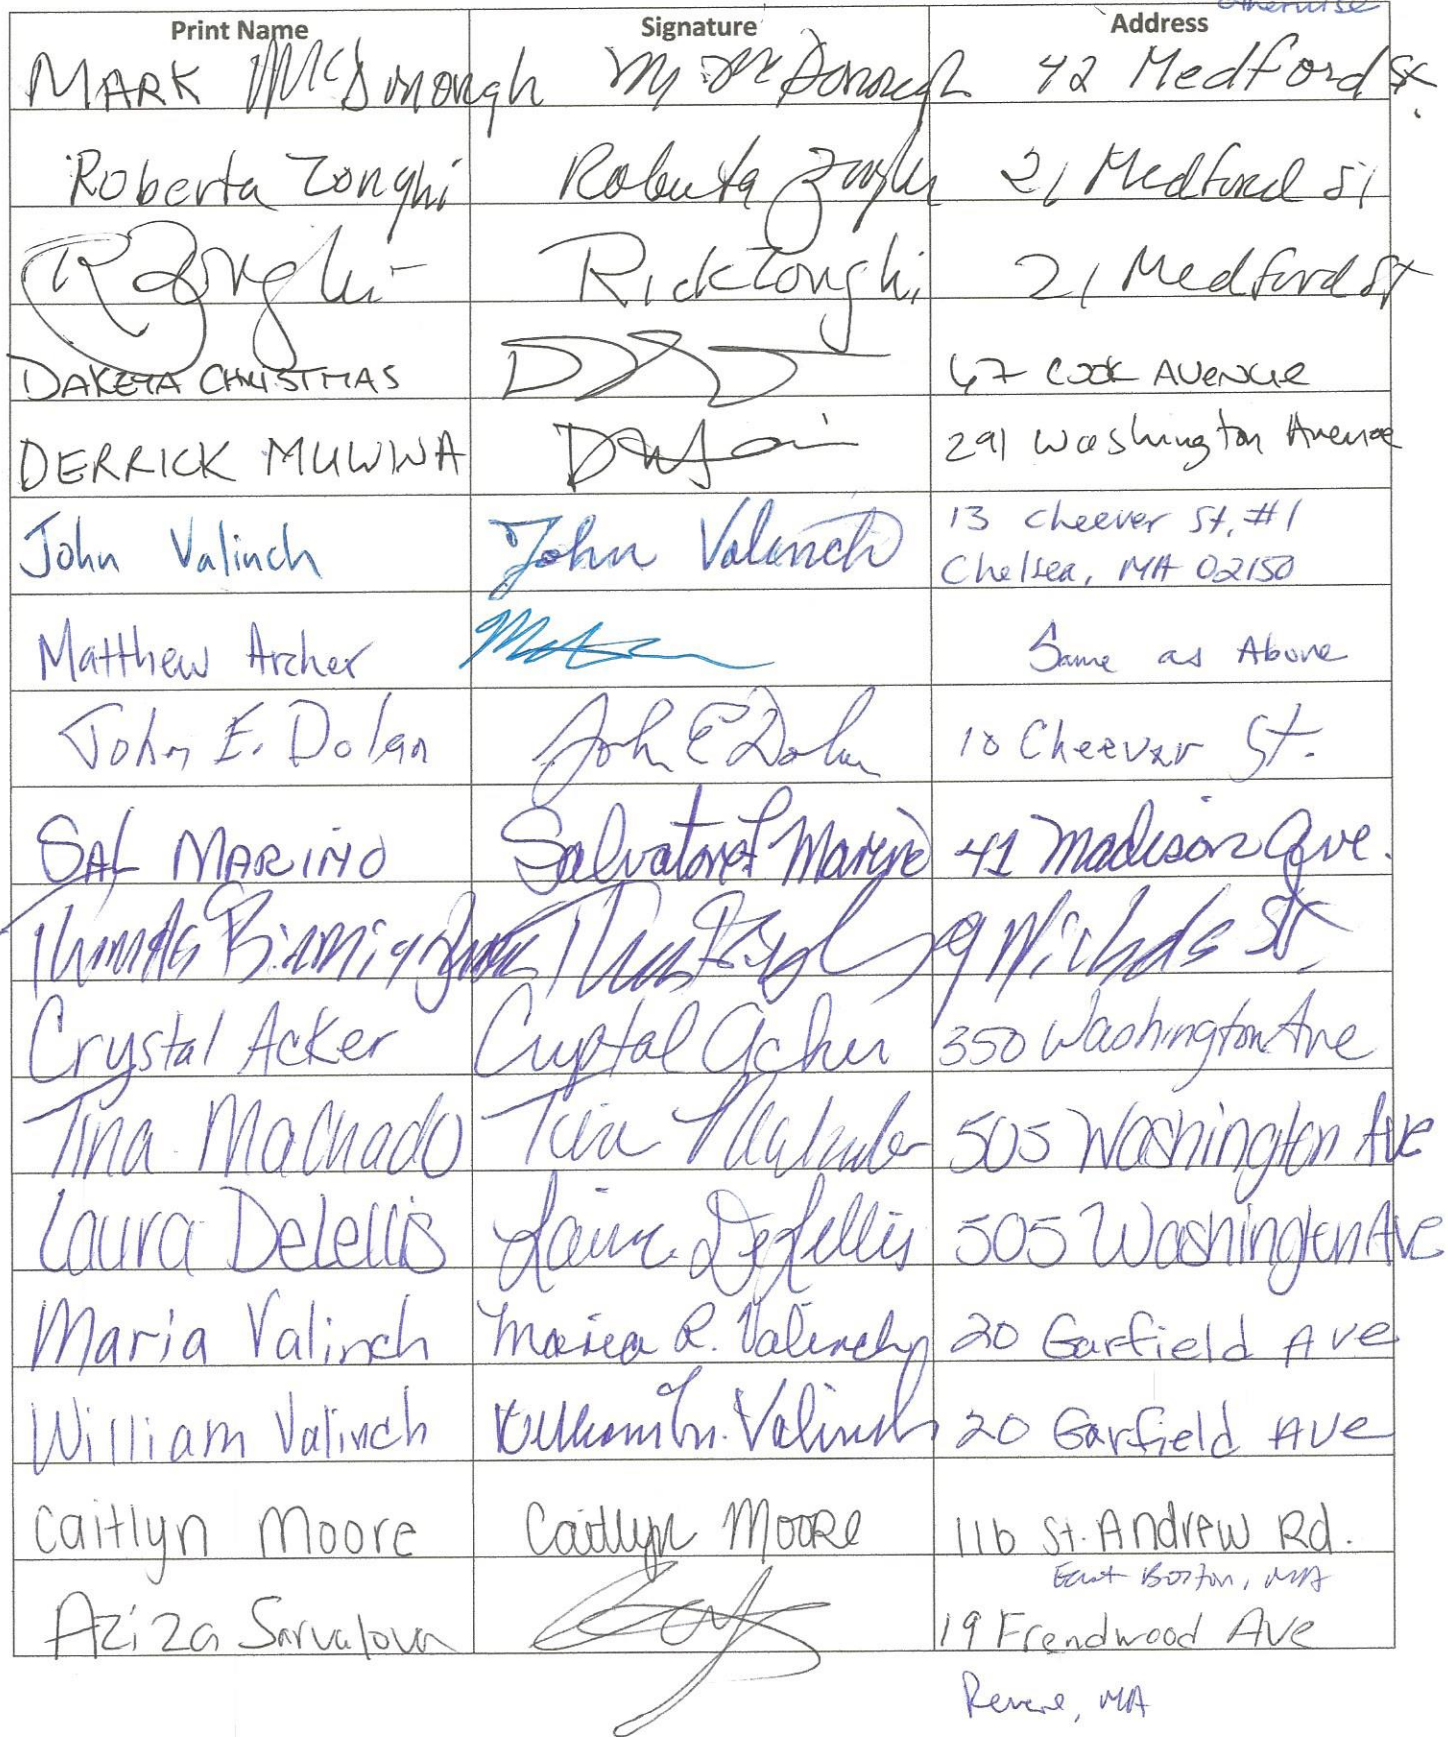 otherwise
Print Name Signature Address
MARK McDonough M McDonough 42 Medford St.
Roberta Zonghi Roberta Zonghi 21 Medford St
R Zonghi Rick Zonghi 21 Medford St
DAKEYA CHRISTMAS 67 COOK AVENUE
DERRICK MUWINA 291 Washington Avenue
John Valinch John Valinch 13 Cheever St. #1
Chelsea, MA 02150
Matthew Archer Same as Above
John E. Dolan John E Dolan 10 Cheever St.
SAL MARINO Salvatore Marino 41 Madison Ave.
Thomas Birmingham 9 Nichols St.
Crystal Acker Crystal Acker 350 Washington Ave
Tina Machado Tina Machado 505 Washington Ave
Laura DeLellis Laura DeLellis 505 Washington Ave
Maria Valinch Maria R. Valinch 20 Garfield Ave
William Valinch William M. Valinch 20 Garfield Ave
Caitlyn Moore Caitlyn Moore 116 St. Andrew Rd.
East Boston, MA
Aziza Sarvalova 19 Frendwood Ave
Revere, MA